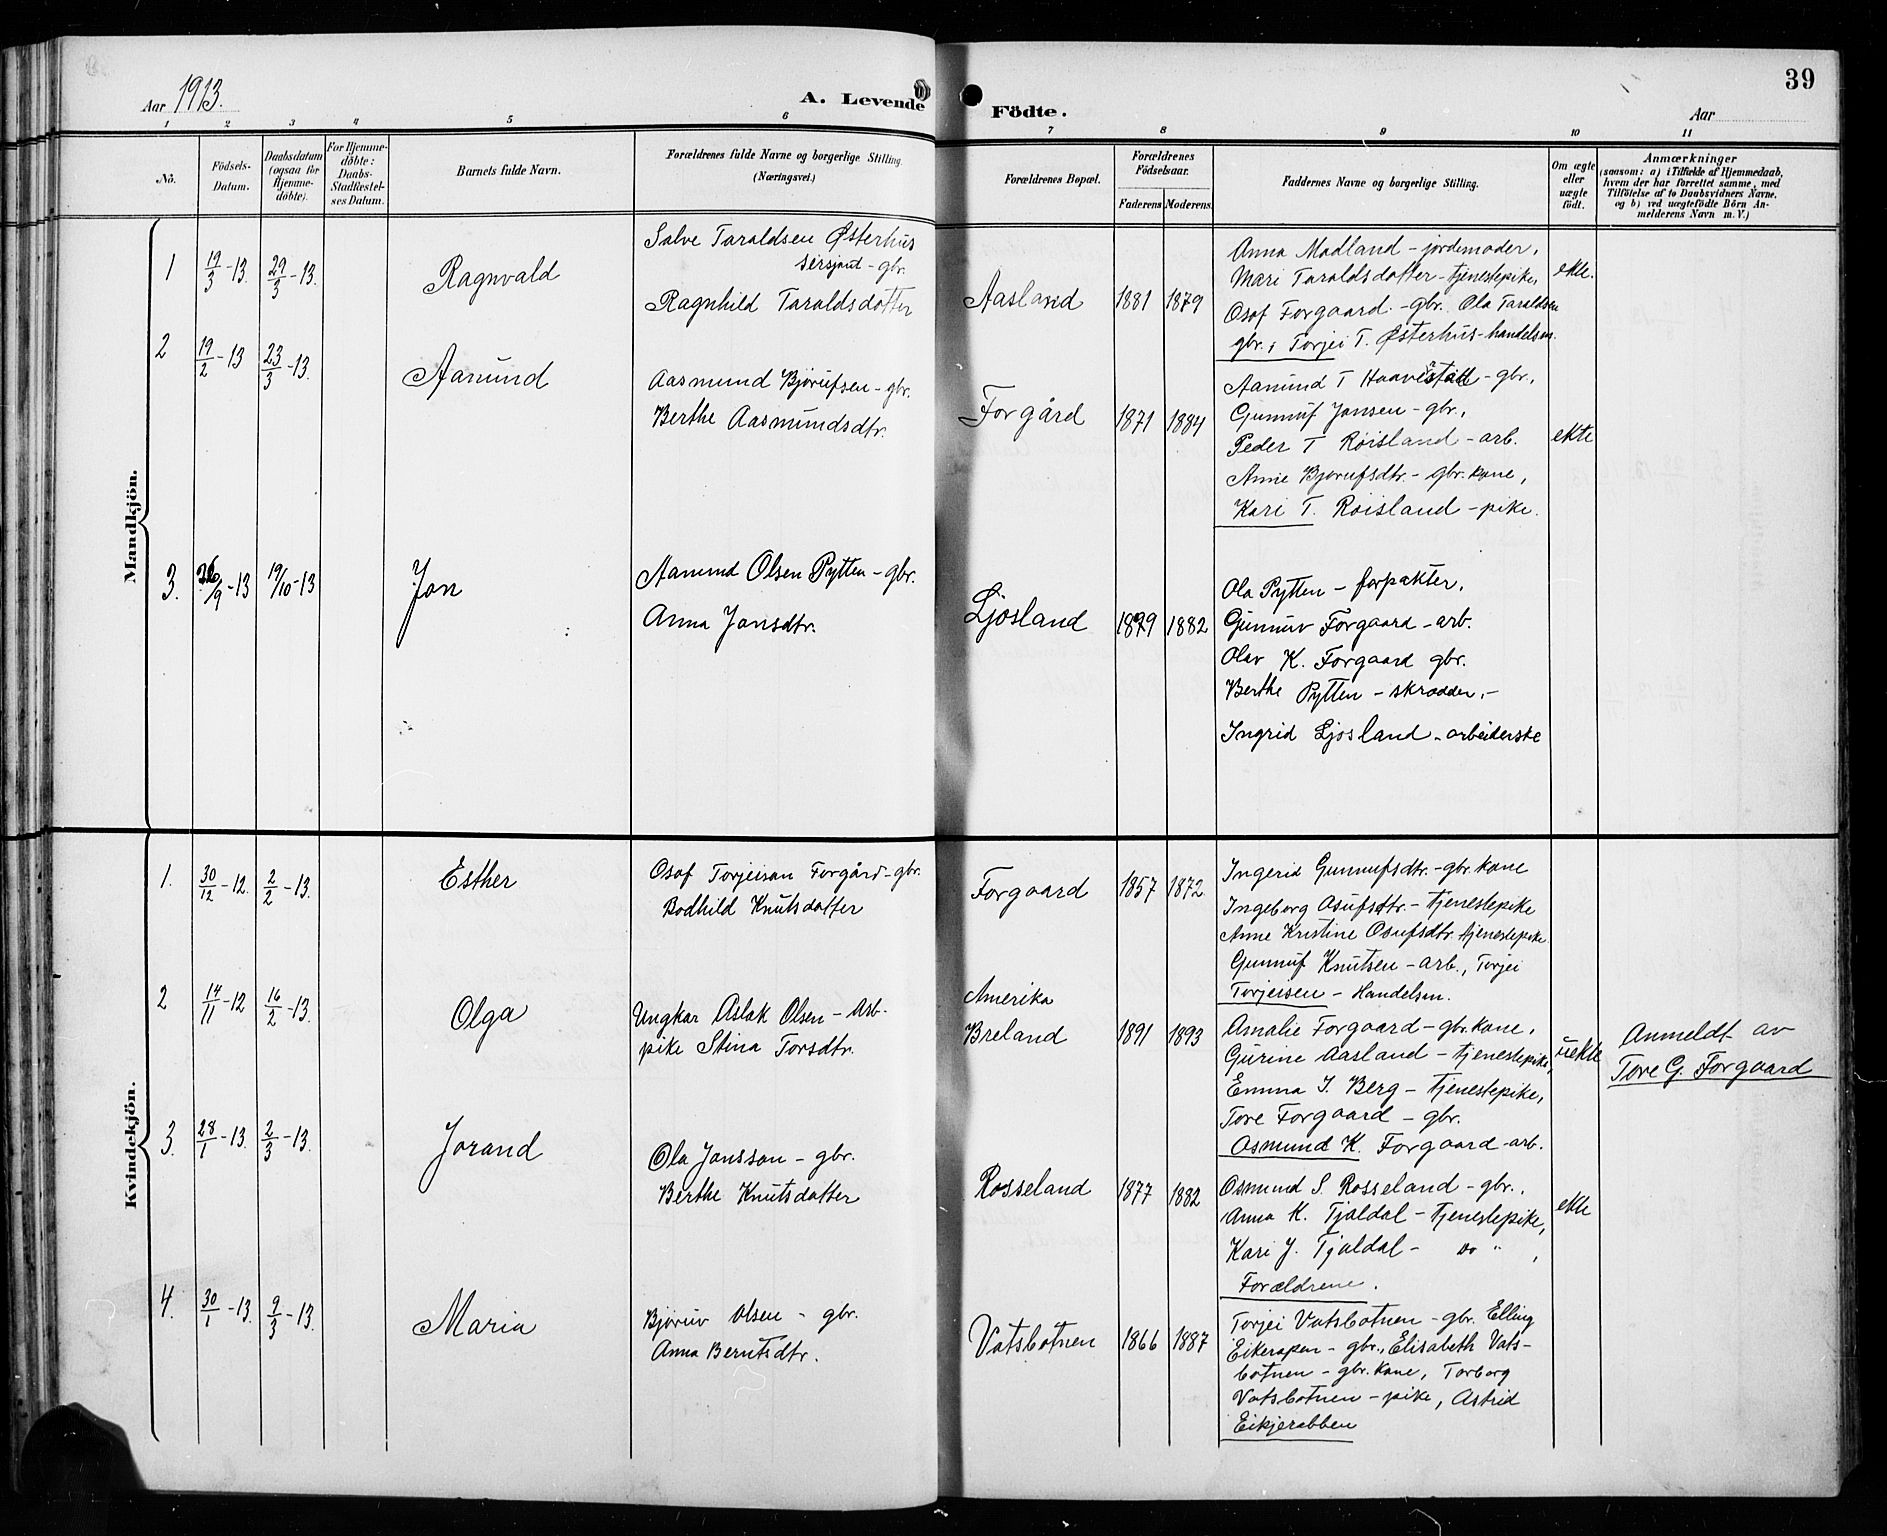 39
Aar 1913.
A. Levende Födte.
Aar
1 2 3 4 5 6 7 8 9 10 11
No.
Födsels-Datum.
Daabsdatum (ogsaa for Hjemmedöbte).
For Hjemmedöbte: Daabs-Stadfæstelses Datum.
Barnets fulde Navn.
Forældrenes fulde Navne og borgerlige Stilling. (Næringsvei.)
Forældrenes Bopæl.
Forældrenes Födselsaar.
Faderens Moderens.
Faddernes Navne og borgerlige Stilling.
Om ægte eller uægte födt.
Anmærkninger
(saasom: a) i Tilfælde af Hjemmedaab,
hvem der har forrettet samme, med
Tilföielse af to Daabsvidners Navne.
og b) ved uægtefödte Börn An-
melderens Navn m. V.)
Mandkjön.
1 19/3-13. 29/3-13. Ragnvald
Salve Taraldsen Østerhus
sersjant - gbr.
Ragnhild Taraldsdatter
Aasland 1881 1879
Anna Madland - jordemoder,
Mari Taraldsdatter - tjenestepike,
Osof Forgaard - gbr. Ola Taraldsen
gbr., Torjei T. Østerhus - handelsm.
ekte.
2 19/2-13 23/3-13. Aanund
Aasmund Bjørufsen - gbr.
Berthe Aasmundsdtr.
Forgård 1871 1884
Aanund T Haavestad - gbr,
Gunnuf Jansen - gbr,
Peder T Røisland - arb.
Anne Bjørufsdtr. - gbr. kone,
Kari T. Røisland - pike.
ekte
3. 26/9-13 19/10-13 Jon
Aanund Olsen Pytten - gbr.
Anna Jonsdtr.
Ljosland 1879 1882
Ola Pytten - forpakter,
Gunnuv Forgaard - arb.
Olav K. Forgaard gbr.
Berthe Pytten - skrædder, -
Ingrid Ljosland - arbeiderske
Kvindekjön.
1. 30/12-12. 2/2-13. Esther
Osof Torjeison Forgård - gbr.
Bodhild Knutsdatter
Forgaard 1857 1872
Ingerid Gunnufsdtr. - gbr. kone
Ingeborg Asufsdtr. - tjenestepike
Anne Kristine Osufsdtr. tjenestepike.
Gunnuf Knutsen - arb., Torjei
Torjeisen - Handelsm.
2 14/11-12 16/2-13. Olga
Ungkar Aslak Olsen - arb.
pike Stina Torsdtr.
Amerika
Breland 1891 1893
Amalie Forgaard - gbr. kone,
Gurine Aasland - tjenestepike,
Emma I. Berg - tjenestepike,
Tore Forgaard - gbr.
Osmund K. Forgaard - arb.
uekte
Anmeldt av
Tore G. Forgaard
3. 28/1-13. 2/3-13. Jorand
Ola Jonsson - gbr.
Berthe Knutsdatter
Rosseland 1877 1882
Osmund S. Rosseland - gbr.,
Anna K. Tjaldal - tjenestepike,
Kari J. Tjaldal - do " ,
Forældrene.
ekte
4. 30/1-13. 9/3-13. Maria
Bjøruv Olsen - gbr.
Anna Berntsdtr.
Vatsbotnen 1866 1887
Torjei Vatsbotnen - gbr. Elling
Eikerapen - gbr., Elisabeth Vats-
botnen - gbr. kone, Torborg
Vatsbotnen - pike, Astrid
Eikjerabben